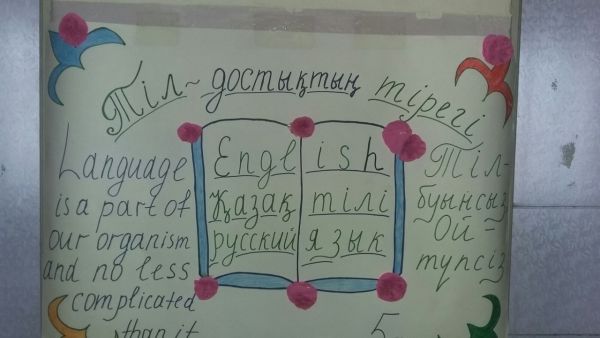 Тіл~ достықтың тірегі
Language
is a part of
our organism
and no less
complicated
than it
English
Қазақ тілі
русский язык
Тіл-
буынсыз
Ой-
түпсіз